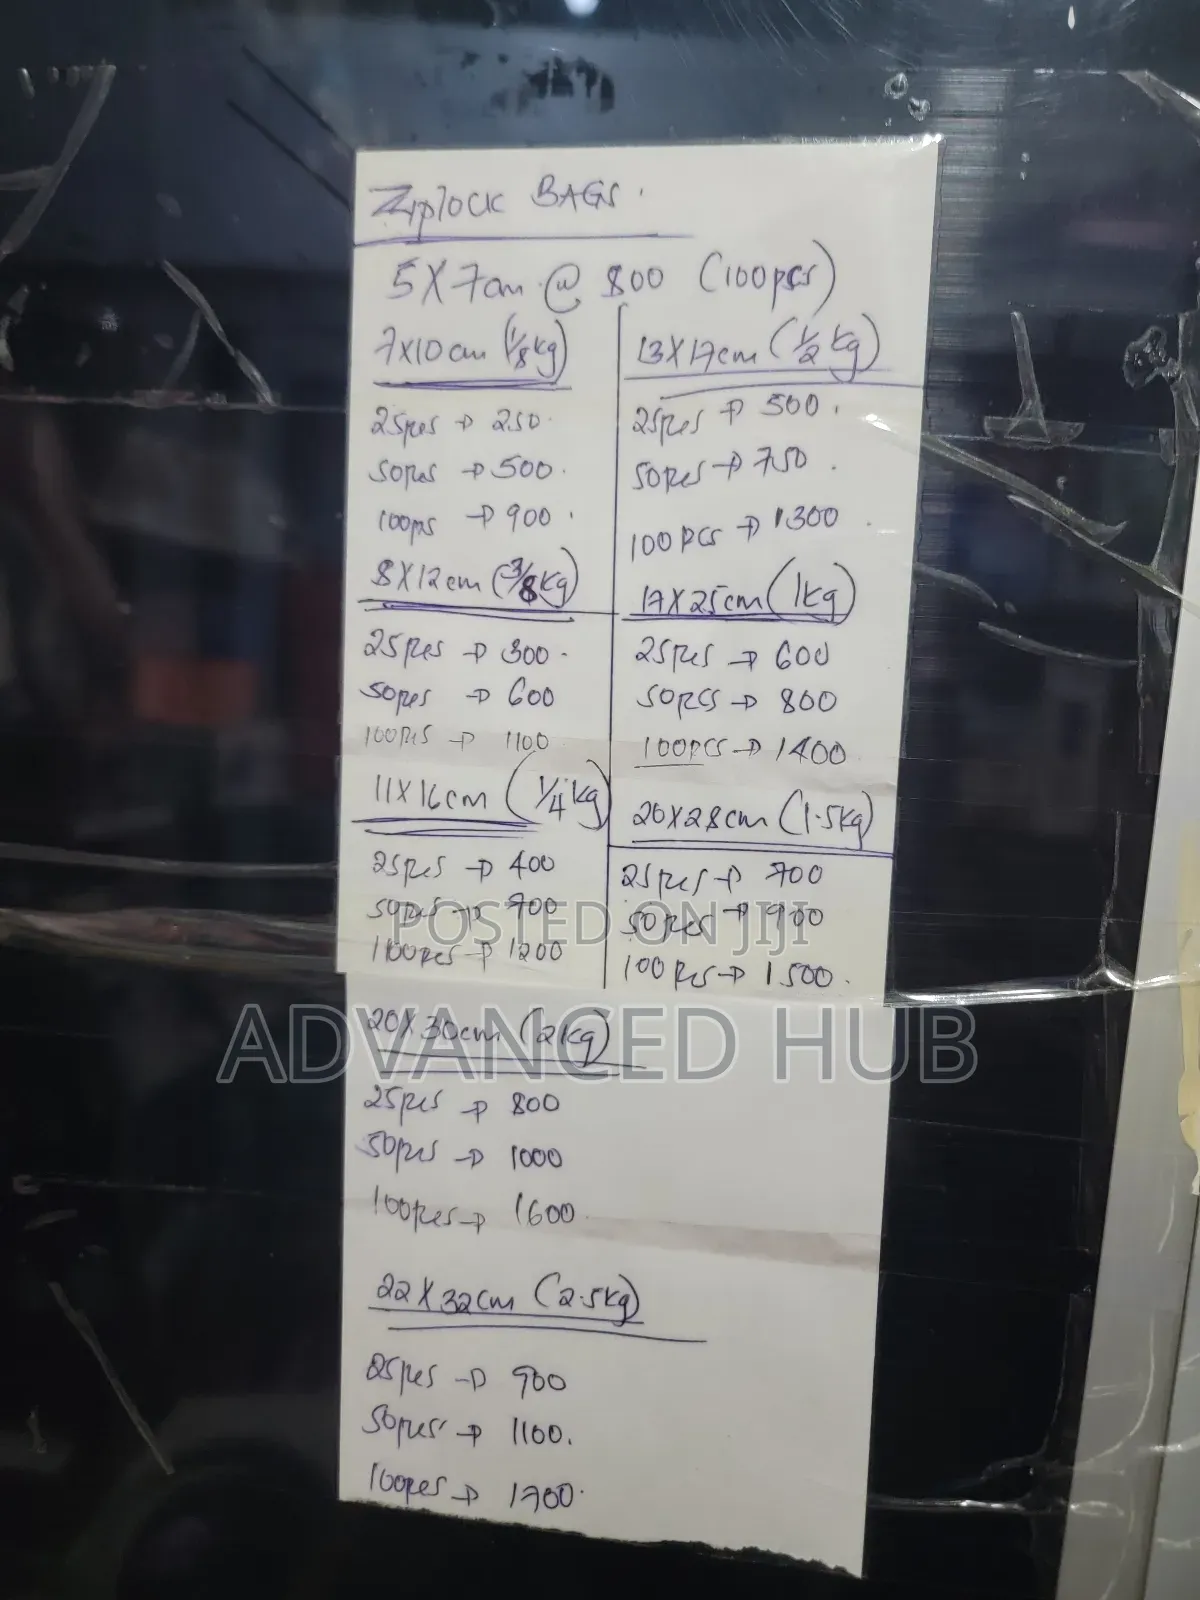 Ziplock BAGS.
5X7cm @ 800 (100pcs)
7X10cm (1/8kg)
25pcs → 250.
50pcs → 500.
100pcs → 900.
8X12cm (3/8kg)
25pcs → 300.
50pcs → 600
100pcs → 1100
11X16cm (1/4kg)
25pcs → 400
50pcs → 700
100pcs → 1200
13X17cm (1/2kg)
25pcs → 500.
50pcs → 750.
100pcs → 1300.
17X25cm (1kg)
25pcs → 600
50pcs → 800
100pcs → 1400
20X28cm (1.5kg)
25pcs → 700
50pcs → 900
100pcs → 1500.
POSTED ON JIJI
ADVANCED HUB
20X30cm (2kg)
25pcs → 800
50pcs → 1000
100pcs → 1600
22X32cm (2.5kg)
25pcs → 900
50pcs → 1100.
100pcs → 1700.